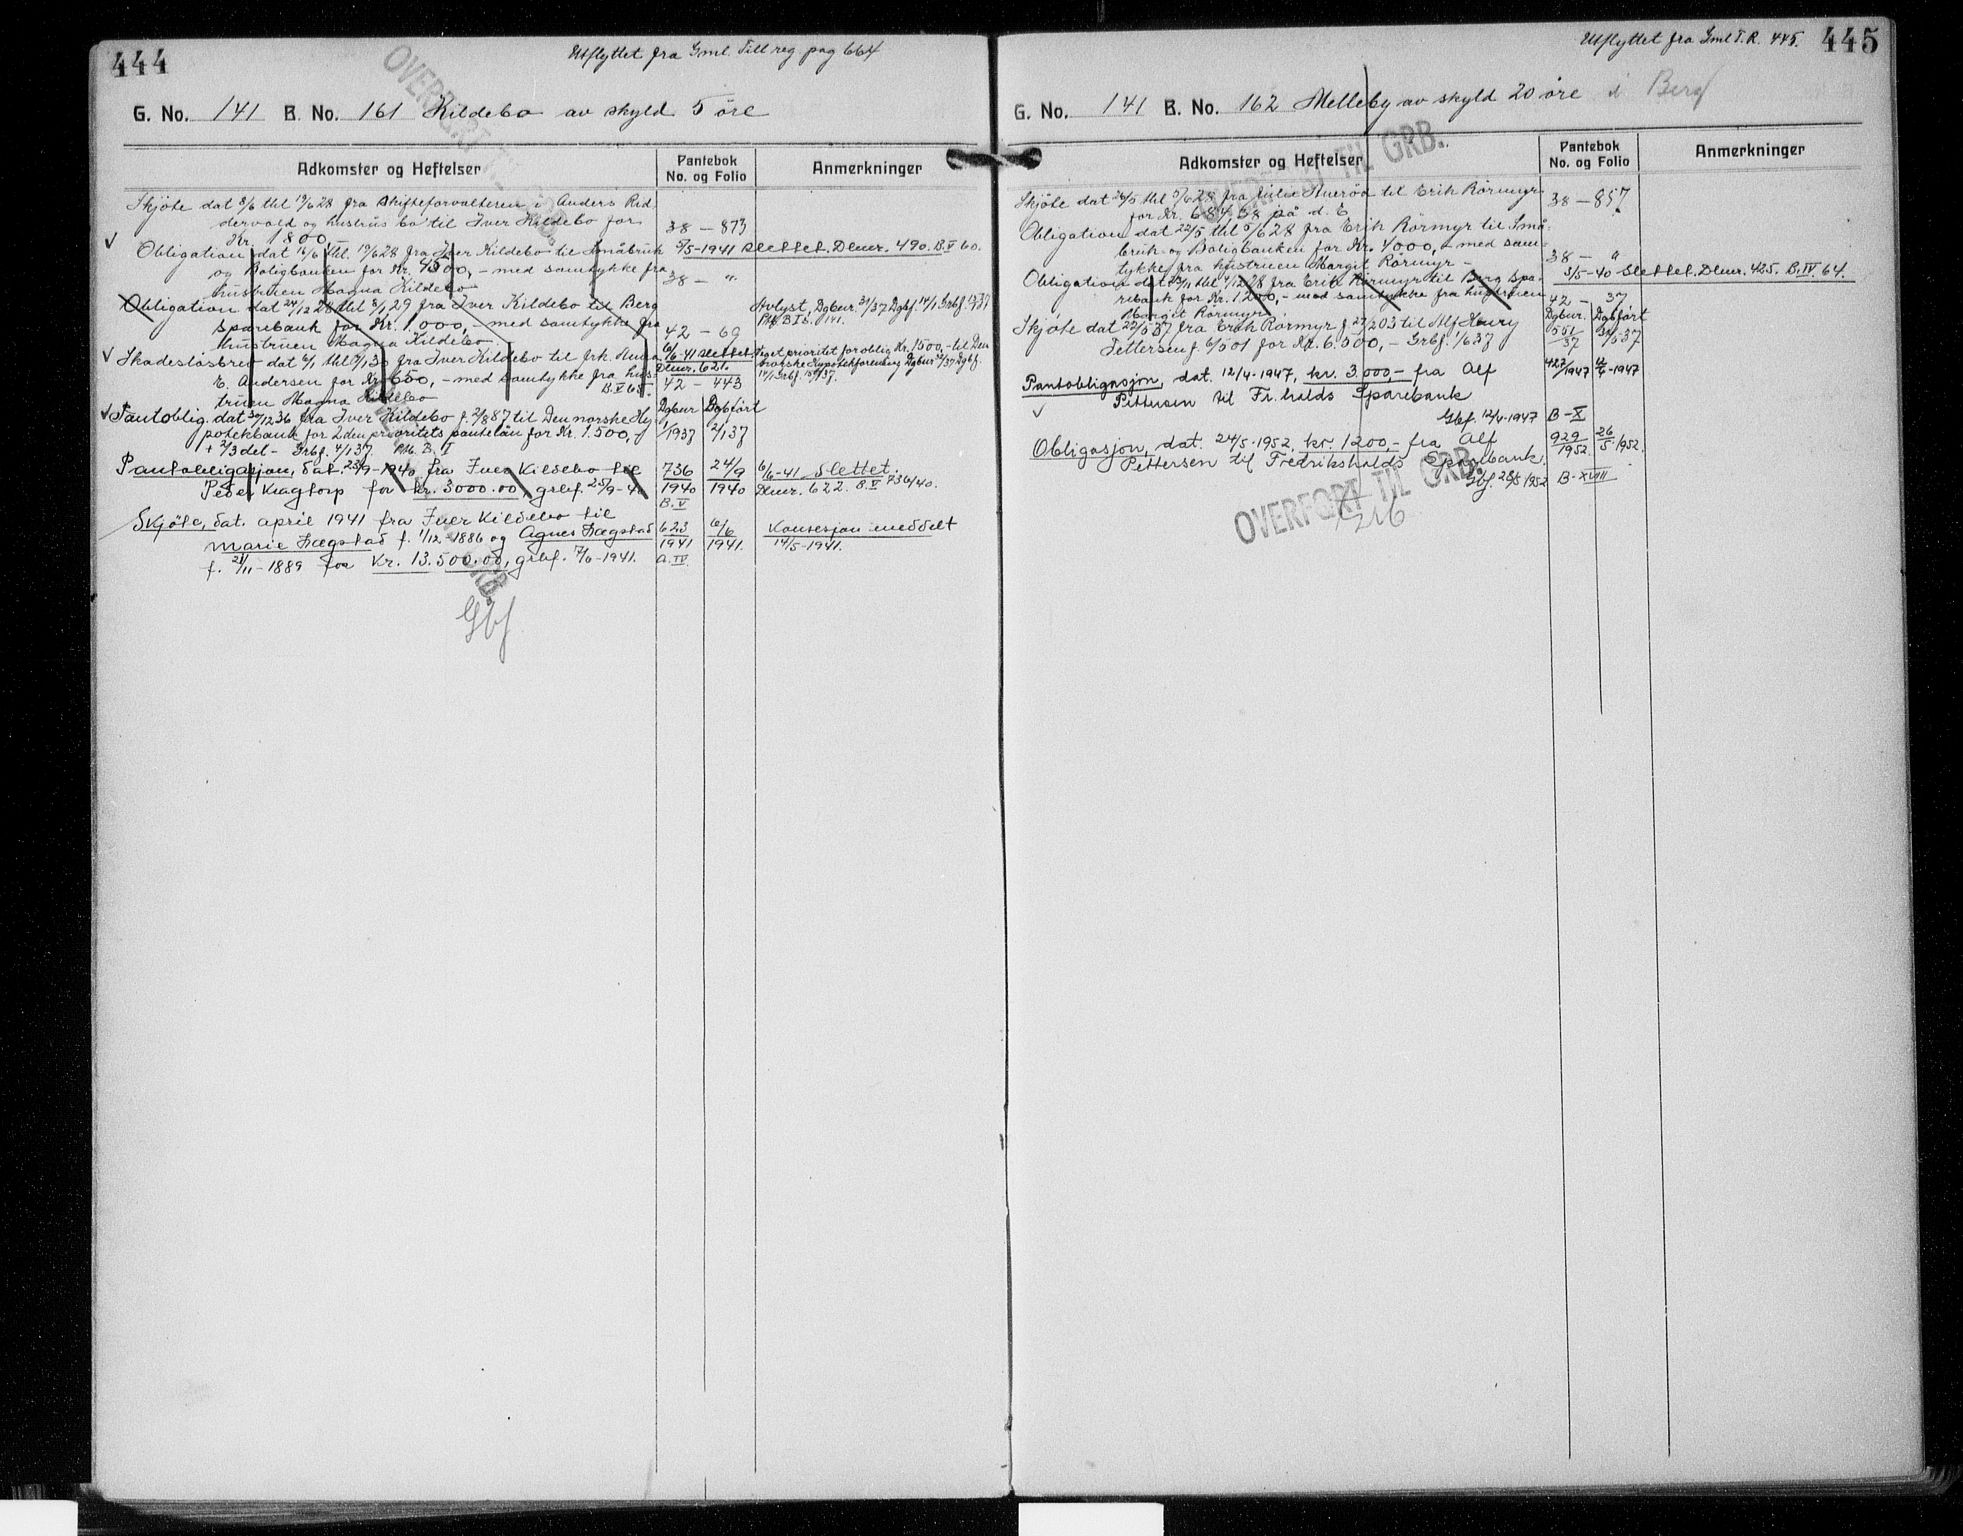 444
Utflyttet fra Gml. Till reg pag 664
G. No. 141 B. No. 161 Kildebo av skyld 5 öre
OVERFØRT TIL GRB.
Adkomster og Heftelser
Pantebok No. og Folio
Anmerkninger
Skjöte dat 8/6 thl 19/6 28 fra skifteforvalteren i Anders Rid-
dervold og hustrus bo til Iver Kildebo for
Kr. 1800 38 — 873
Obligation dat 16/6 thl. 19/6 28 fra Iver Kildebo til Småbruk 5/5-1941 slettet. Dbnr. 490. B.V 60.
og Boligbanken for Kr. 4500,- med samtykke fra
hustruen Magna Kildebo 38 — "
Obligation dat 24/12 28 thl 8/1 29 fra Iver Kildebo til Berg
Sparebank for Kr. 1.000,- med samtykke fra
hustruen Magna Kildebo 42 — 69
Avlyst, Dgbnr. 31/37 Dgbf. 14/1 Grbf. 15/1 37
Pb. B I S. 141.
Skadeslösbrev dat 6/1 thl 9/1 30 fra Iver Kildebo til frk. Anna
E. Andersen for Kr 650,- med samtykke fra hus-
truen Magna Kildebo
6/6-41 slettet.
Dbnr. 621. B.V 65.
42 — 443
Veget prioritet for oblig Kr. 1500,- til Den
norske Hypotekforening Dgbnr 32/37 Dgbf.
14/1 Grbf. 15/1 37.
Pantoblig. dat 30/12 36 fra Iver Kildebo f. 2/8 87 til Den norske Hy-
potekbank for 2den prioritets pantelån for Kr. 1.500,-
+ 2/3 del - Grbf. 4/1 37. Pb. B. I
Dgbnr Dgbfört
1/1937 2/1 37
Pantobligasjon, dat. 23/9-1940 fra Iver Kildebo til
Peder Kragtorp for kr. 3000.00, grbf. 25/9-40
736/1940 24/9 1940
B.V
6/6-41 slettet.
Dbnr. 622. B.V 736/40.
Skjöte, dat. april 1941 fra Iver Kildebo til
Marie Hægstad f. 1/12-1886 og Agnes Hægstad
f. 21/11-1889 for kr. 13.500.00, grbf. 17/6-1941.
623/1941 6/6 1941.
A.IV
Konsesjon meddelt
14/5-1941.
Gbf
445
Utflyttet fra Gml T.R. 445.
G. No. 141 B. No. 162 Melleby av skyld 20 öre i Berg
OVERFØRT TIL GRB.
Adkomster og Heftelser
Pantebok No. og Folio
Anmerkninger
Skjöte dat 26/5 thl 5/6 28 fra Julie Bueröd til Erik Rörmyr
for Kr. 684.58 på d. E 38 — 857
Obligation dat 22/5 thl 5/6 28 fra Erik Rörmyr til Små-
bruk og Boligbanken for Kr. 4000,- med sam-
tykke fra hustruen Margit Rörmyr - 38 — "
3/5-40 slettet. Dbnr. 425. B.IV. 64.
Obligation dat 23/11 thl 4/12 28 fra Erik Rörmyr til Berg Spa-
rebank for Kr. 1200,- med samtykke fra hustruen
Margit Rörmyr 42 — 37
Skjöte dat 22/5 37 fra Erik Rörmyr f 27/2 03 til Alf Henry
Pettersen f. 6/5 01 for Kr. 6.500,- Grbf. 1/6 37
Dgbnr. Dgbfört
551/37 31/5-37
Pantobligasjon, dat. 12/4-1947, kr. 3.000,- fra Alf
Pettersen til Fr. halds Sparebank
Gbf. 12/4-1947
427/1947 12/4-1947
B-X
Obligasjon, dat. 24/5-1952, kr. 1200,- fra Alf
Pettersen til Fredrikshalds Sparebank.
Gbf. 28/5 1952
929/1952 26/5 1952.
B-XVIII
OVERFØRT TIL GRB.